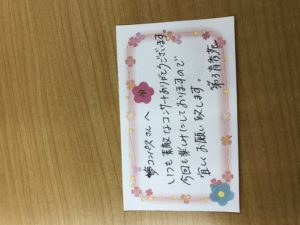 夢コンパスさんへ
いつも素敵なコンサートありがとうございます。
今回も楽しみにしておりますので
宜しくお願い致します。
第3育秀苑